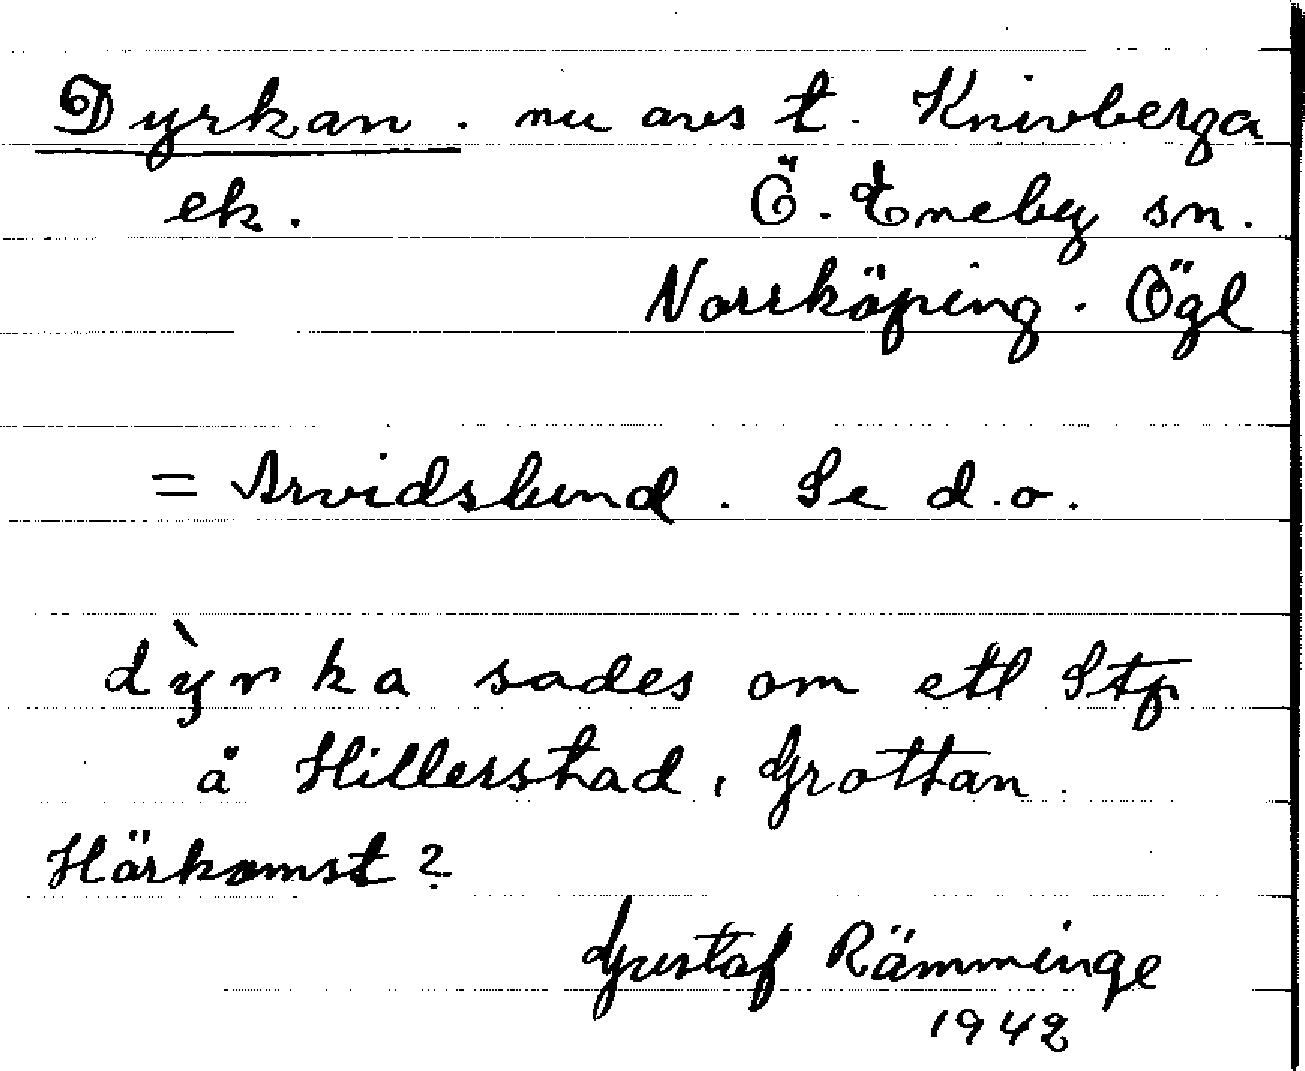 Dyrkan. nu avs t. Knivberga
ek. Ö. Eneby sn.
Norrköping. Ögl
= Arvidslund. Se d.o.
dỳrka sades om ett Stp
å Hillerstad, Grottan.
Härkomst?
Gustaf Rämminge
1942